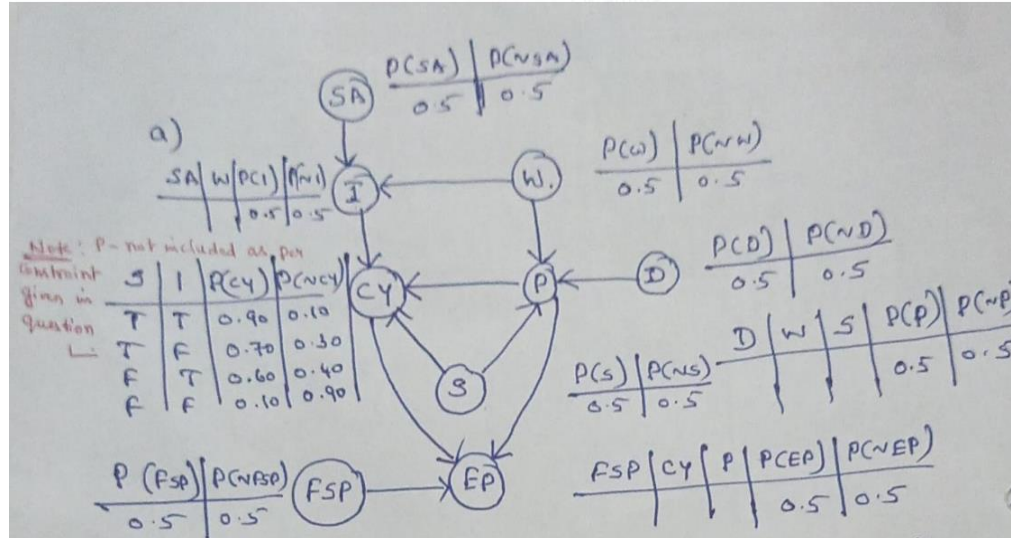 P(SA) | P(~SA)
0.5 | 0.5
SA
a)
P(W) | P(~W)
0.5 | 0.5
SA | W | P(I) | P(~I)
0.5 | 0.5
I
W.
Note: P - not included as per
constraint
given in
question
P(D) | P(~D)
0.5 | 0.5
S | I | P(CY) | P(~CY)
T | T | 0.90 | 0.10
T | F | 0.70 | 0.30
F | T | 0.60 | 0.40
F | F | 0.10 | 0.90
CY
P
D
D | W | S | P(P) | P(~P)
0.5 | 0.5
S
P(S) | P(~S)
0.5 | 0.5
P(FSP) | P(~FSP)
0.5 | 0.5
FSP
EP
FSP | CY | P | P(EP) | P(~EP)
0.5 | 0.5